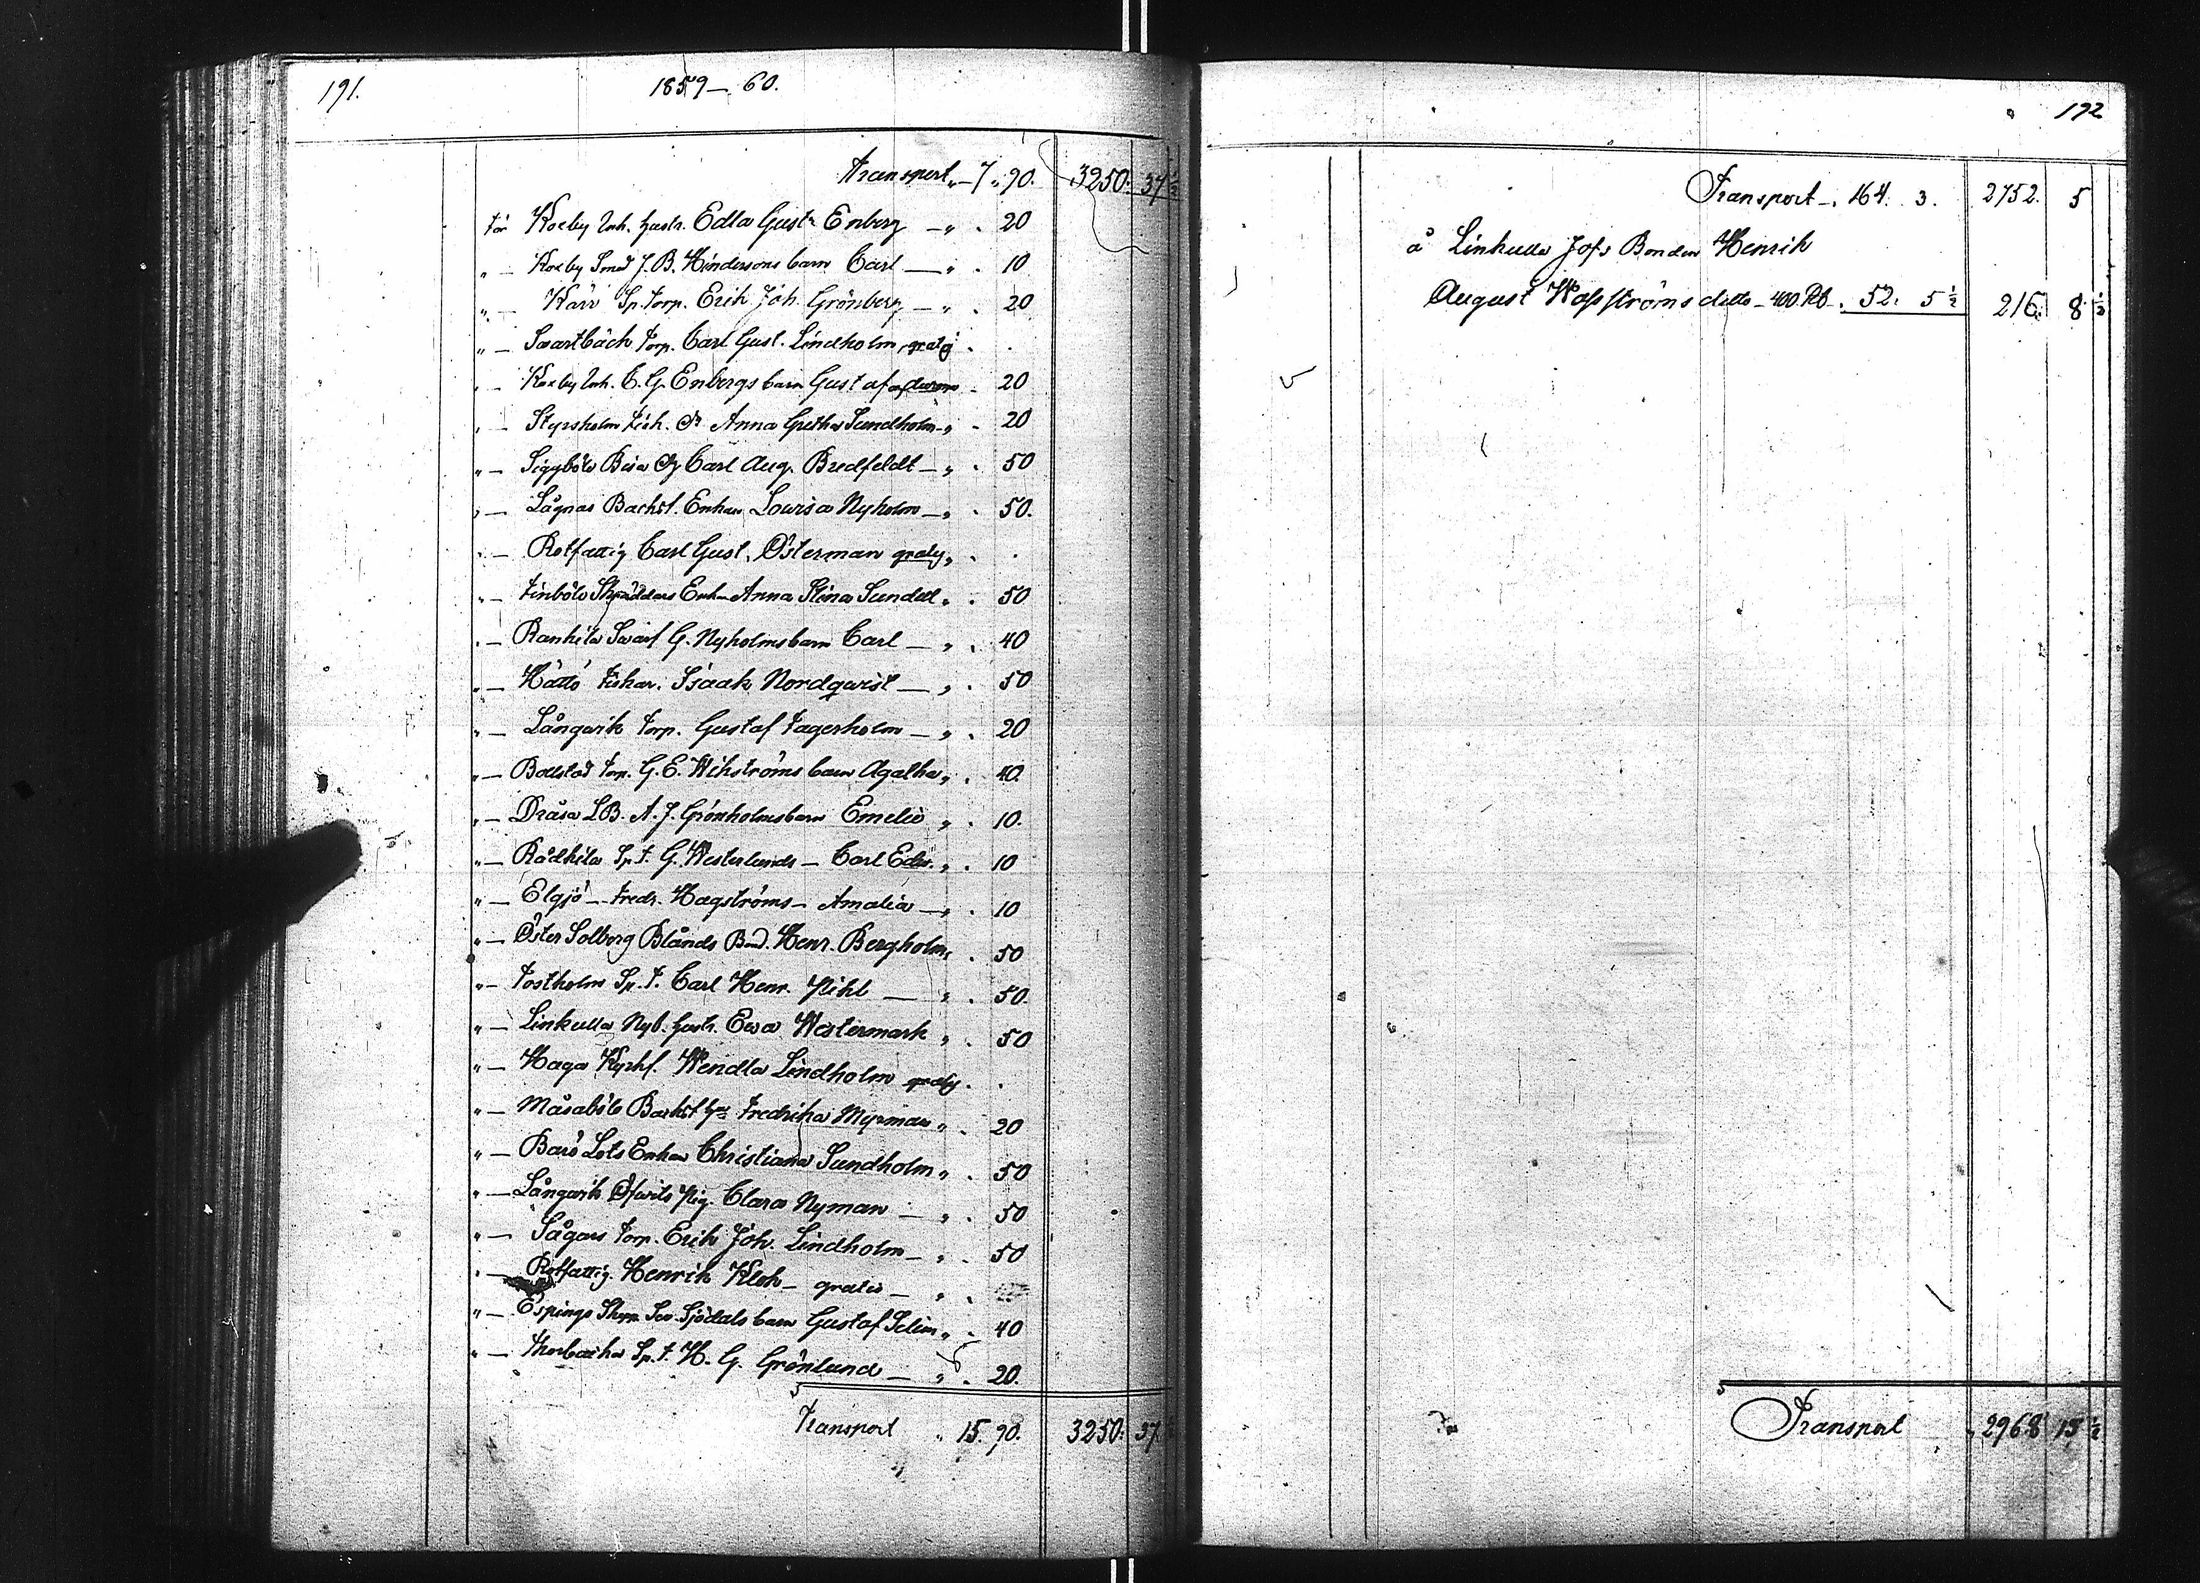 191.
1859–60.
Transport „ 7 „ 90. 3250. 37 ½
för Koxby Inh. hustr. Edla Gust. Enberg – „ . 20
„ – Koxby Smed J. B. Hindersons barn Carl – „ . 10
„ – Kärr Sp. torp. Erik Joh. Grönberg – „ . 20
„ – Swartbäck torp. Carl Gust. Lindholm gratis . .
„ – Koxby Inh. C. G. Enbergs barn Gustaf . 20
„ – Styrsholm Anna Gretha Sundholm – „ . 20
„ – Siggböle Carl Aug. Bredfeldt – „ . 50
„ – Lågnäs Backst. Enkan Lovisa Nyholm – „ . 50.
„ – Rotfattig Carl Gust. Österman gratis „ .
„ – Finböle Skräddars Enkan Anna Stina Sundell „ . 50
„ – Rankila G. Nyholms barn Carl – „ . 40
„ – Hättö fiskar. Isaak Nordqwist – „ . 50
„ – Långwik torp. Gustaf Fagerholm – „ . 20
„ – Bollstad torp. G. E. Wikströms barn Agatha „ . 40.
„ – Dråsa A. J. Grönholms barn Emelie „ . 10.
„ – Rådkila Sp. t. G. Westerlunds – Carl Edv. „ . 10
„ – Elgsjö – Fredr. Hagströms – Amalia – „ . 10
„ – Öster Solberg Blånds Bond. Henr. Bergholm „ . 50
„ – Tostholm Sp. t. Carl Henr. Pihl – „ . 50.
„ – Linkulla Nyb. hustr. Ewa Westermark „ . 50
„ – Haga Wendla Lindholm gratis . .
„ – Måsaböle Backst. Fredrika Myrman „ . 20
„ – Barö Lots Enkan Christiana Sundholm „ . 50
„ – Långwik Öfwits Pig. Clara Nyman – „ . 50
„ – Sågars torp. Erik Joh. Lindholm – „ . 50
„ – Rotfattig Henrik Klok – gratis – „ .
„ – Espings Skepp. Sjödals barn Gustaf Selim „ . 40
„ – Thorbacka Sp. t. H. G. Grönlund – „ . 20.
Transport „ 15. 90. 3250. 37
192
Transport . 164. 3. 2752. 5
å Linkulla Jofs Bonden Henrik
August Hofströms ditto – 400 Rb . 52. 5 ½ 216. 8 ½
Transport 2968 13 ½